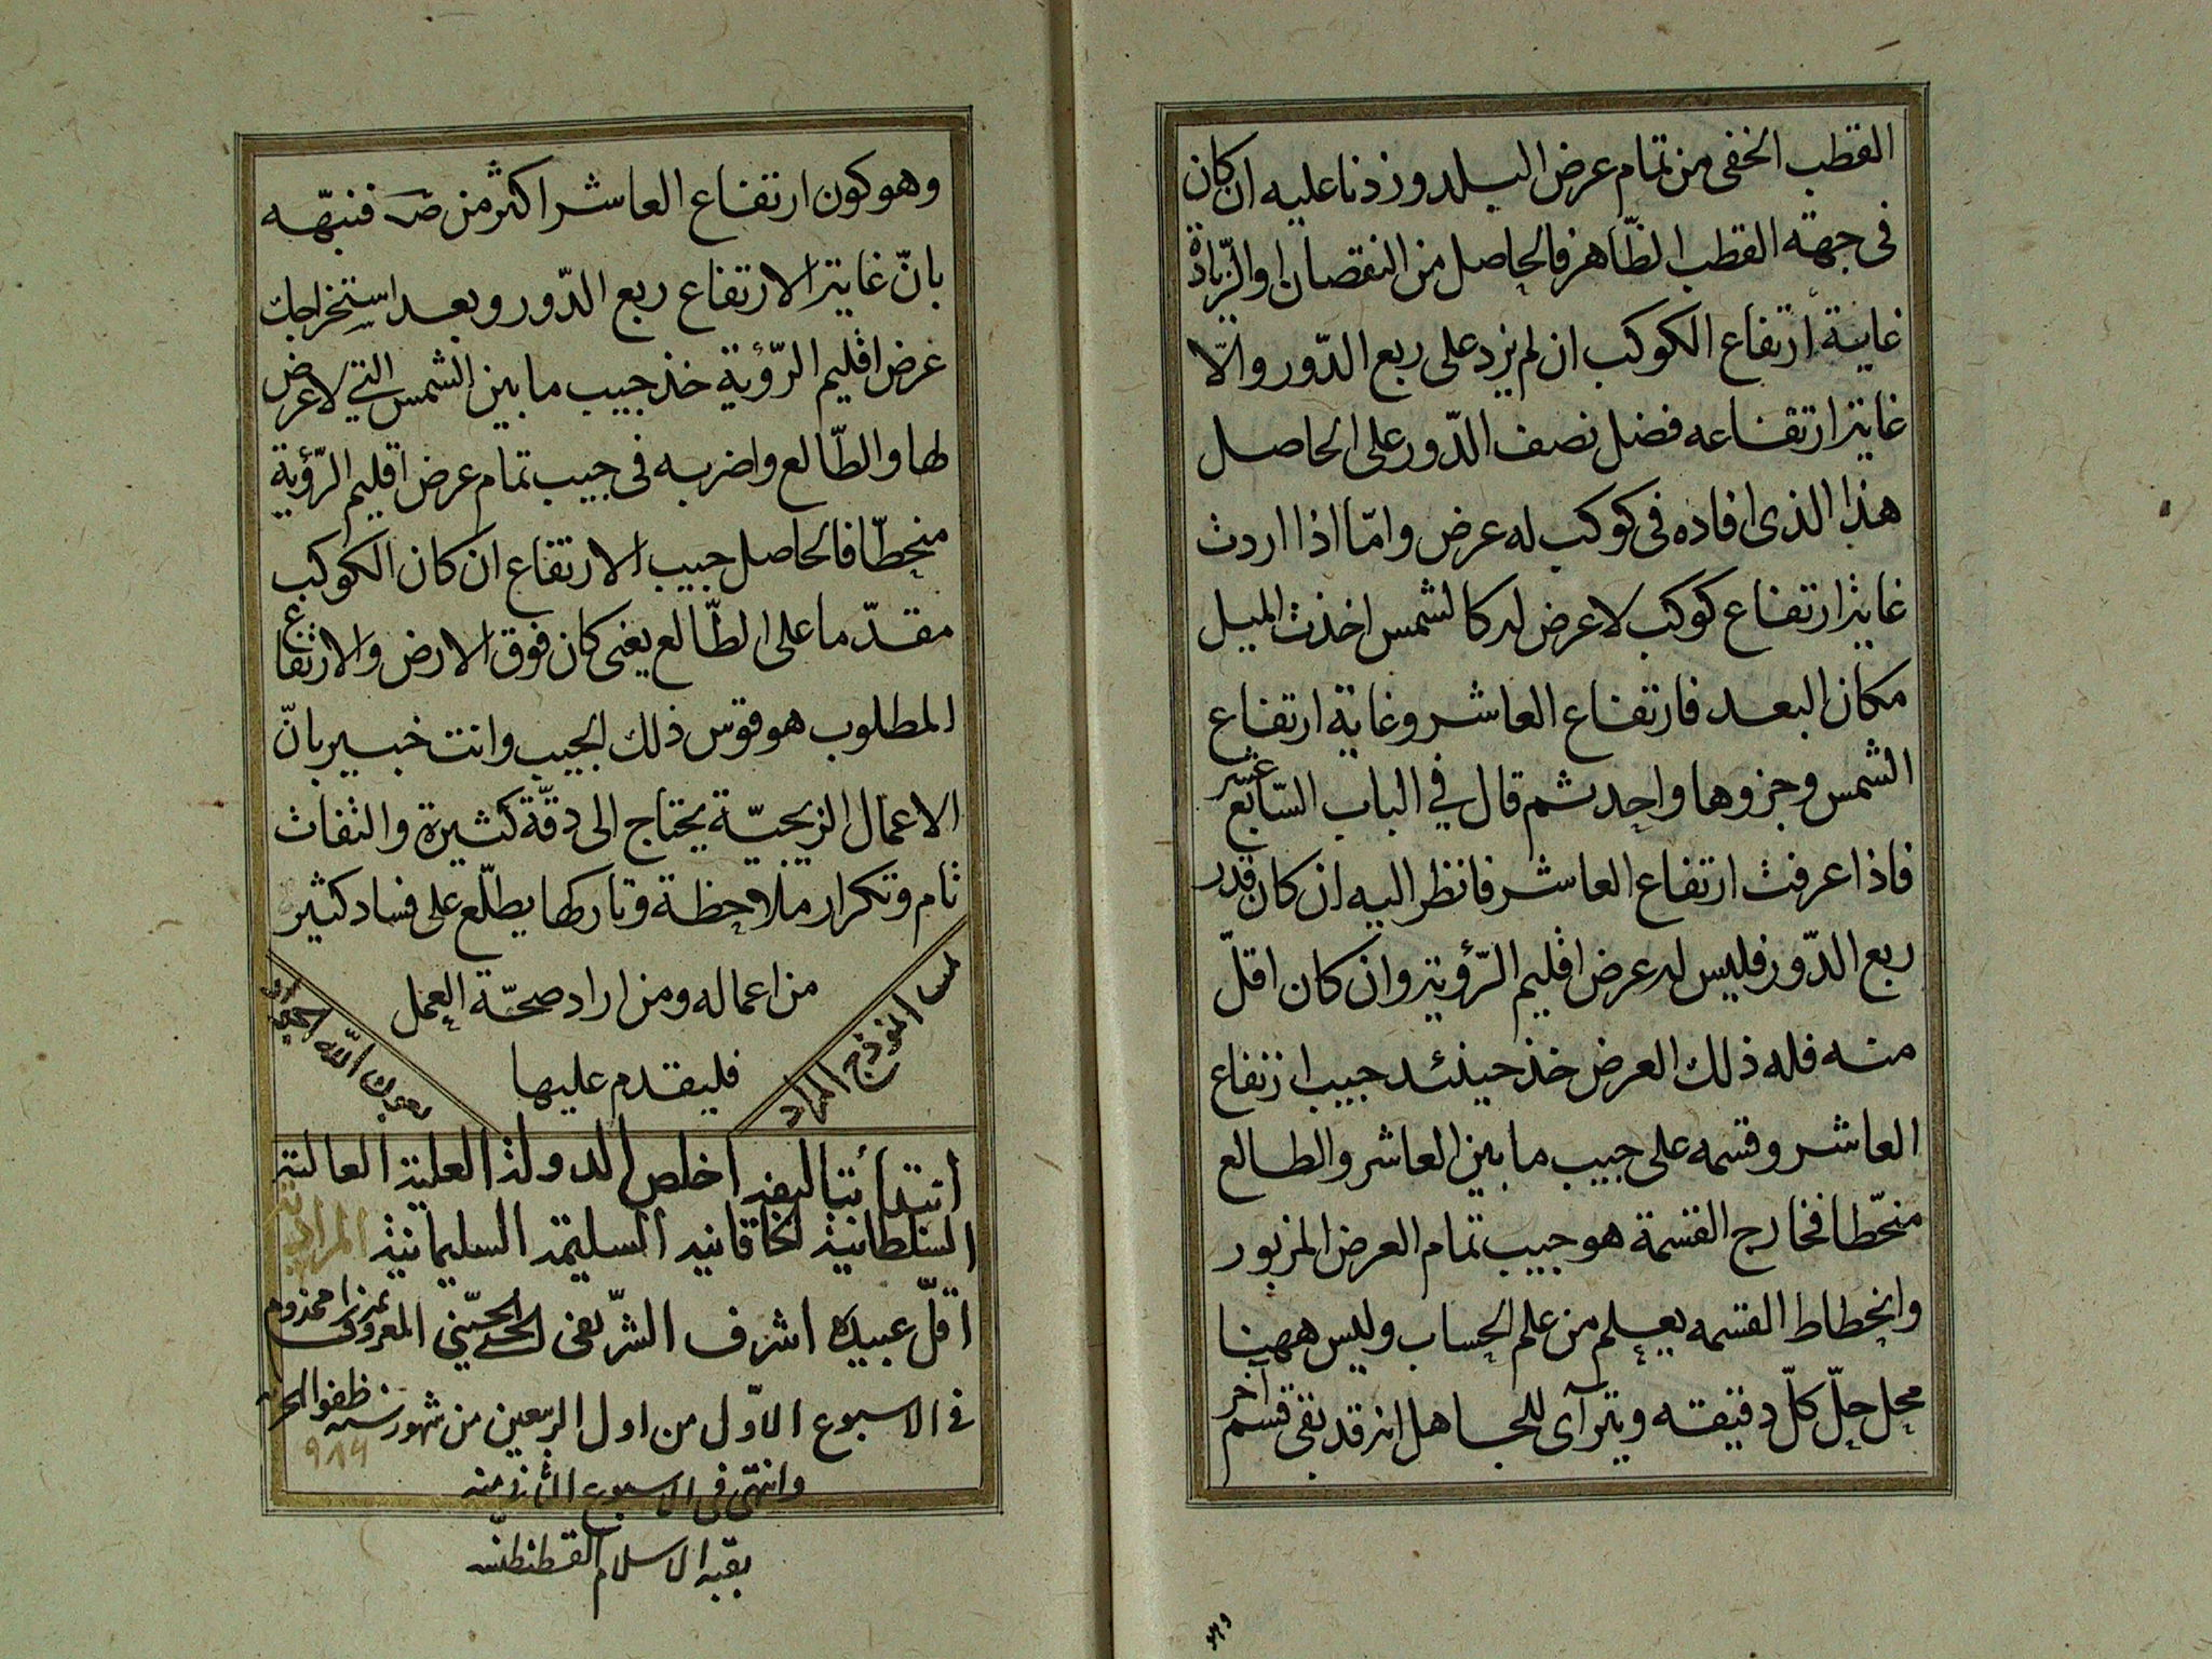 القطب الخفى من تمام عرض البلد وزدنا عليه ان كان
فى جهة القطب الظّاهر فالحاصل من النقصان او الزّيادة
غاية ارتفاع الكوكب ان لم يزد على ربع الدّور والّا
غاية ارتفاعه فضل نصف الدّور على الحاصل
هذا الذى افاده فى كوكب له عرض وامّا اذا اردت
غاية ارتفاع كوكب لا عرض له كالشمس اخذت الميل
مكان البعد فارتفاع العاشر وغاية ارتفاع
الشمس وجزوها واحد ثم قال في الباب السّابع عشر
فاذا عرفت ارتفاع العاشر فانظر اليه ان كان قدر
ربع الدّور فليس له عرض اقليم الرّؤية وان كان اقلّ
منه فله ذلك العرض خذ حينئد جيب ارتفاع
العاشر وقسمه على جيب ما بين العاشر والطالع
منحّطا فخارج القسمة هو جيب تمام العرض المزبور
وانحطاط القسمه يعلم من علم الحساب وليس ههينا
محل حلّ كلّ دقيقه ويترآى للجاهل انه قد بقى قسم آخر
وهو كون ارتفاع العاشر اكثر من ص فنبّهه
بانّ غاية الارتفاع ربع الدّور وبعد استخراجك
عرض اقليم الرّؤية خذ جيب ما بين الشمس التي لا عرض
لها والطّالع واضربه فى جيب تمام عرض اقليم الرّؤية
منحطّا فالحاصل جيب الارتفاع ان كان الكوكب
مقدّما على الطّالع يعنى كان فوق الارض والارتفاع
المطلوب هو قوس ذلك الجيب وانت خبير بانّ
الاعمال الزيجيّة يحتاج الى دقّة كثيرة والتفات
تام وتكرار ملاحظة وتاركها يطلّع على فساد كثير
من اعماله ومن اراد صحّة العمل
فليقدم عليها
انموذج المراد
بعون الله
ابتدأ بتاليفه اخلص الدولة العلية العالية
السلطانية الخاقانيه السليمية السليمانية المرادية
اقلّ عبيده اشرف الشّريفى الحسيني المعروف بميرزا مخدوم
فى الاسبوع الاوّل من اول الربيعين من شهور سنه
٩٨٩
وانتهى فى الاسبوع الثانى منه
بقبة الاسلام القسطنطنيه